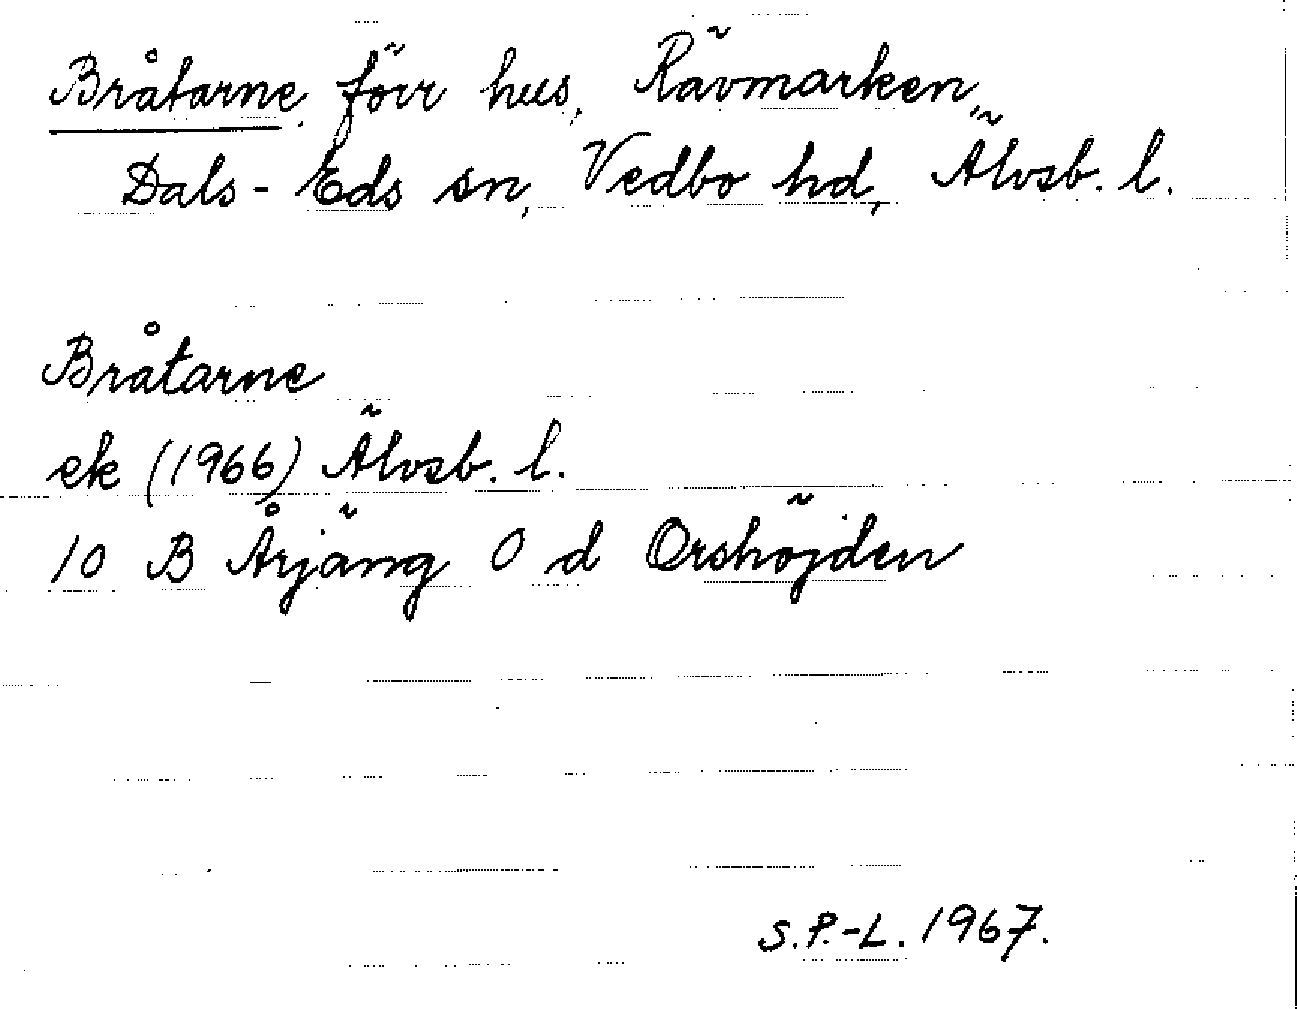 Bråtarne, förr hus, Rävmarken,
Dals-Eds sn, Vedbo hd, Älvsb. l.
Bråtarne
ek (1966) Älvsb. l.
10 B Årjäng 0 d Orshöjden
S.P.-L. 1967.